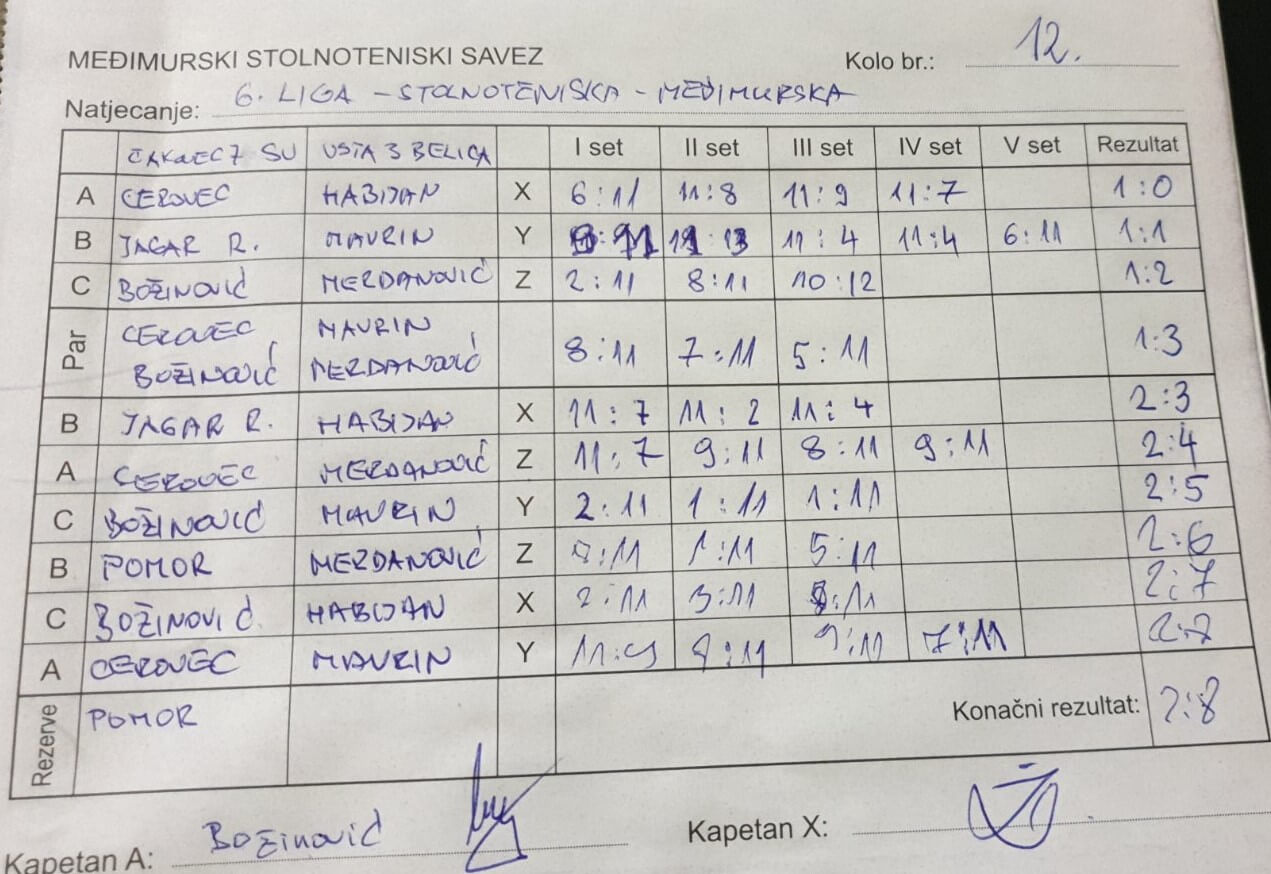 MEĐIMURSKI STOLNOTENISKI SAVEZ Kolo br.: 12.
Natjecanje: 6. LIGA - STOLNOTENISKA - MEĐIMURSKA
ČAKOVEC 7 SU USTA 3 BELICA I set II set III set IV set V set Rezultat
A CEROVEC HABIJAN X 6:11 11:8 11:9 11:7 1:0
B JAGAR R. MAVRIN Y 11:4 11:4 6:11 1:1
C BOŽINOVIĆ MERDANOVIĆ Z 2:11 8:11 10:12 1:2
Par CEROVEC MAVRIN
BOŽINOVIĆ MERDANOVIĆ 8:11 7:11 5:11 1:3
B JAGAR R. HABIJAN X 11:7 11:2 11:4 2:3
A CEROVEC MERDANOVIĆ Z 11:7 9:11 8:11 9:11 2:4
C BOŽINOVIĆ MAVRIN Y 2:11 1:11 1:11 2:5
B POMOR MERDANOVIĆ Z 1:11 5:11 2:6
C BOŽINOVIĆ HABIJAN X 2:11 3:11 2:7
A CEROVEC MAVRIN Y 11:9 9:11 9:11 7:11
Rezerve POMOR Konačni rezultat: 2:8
Kapetan A: BOŽINOVIĆ Kapetan X: